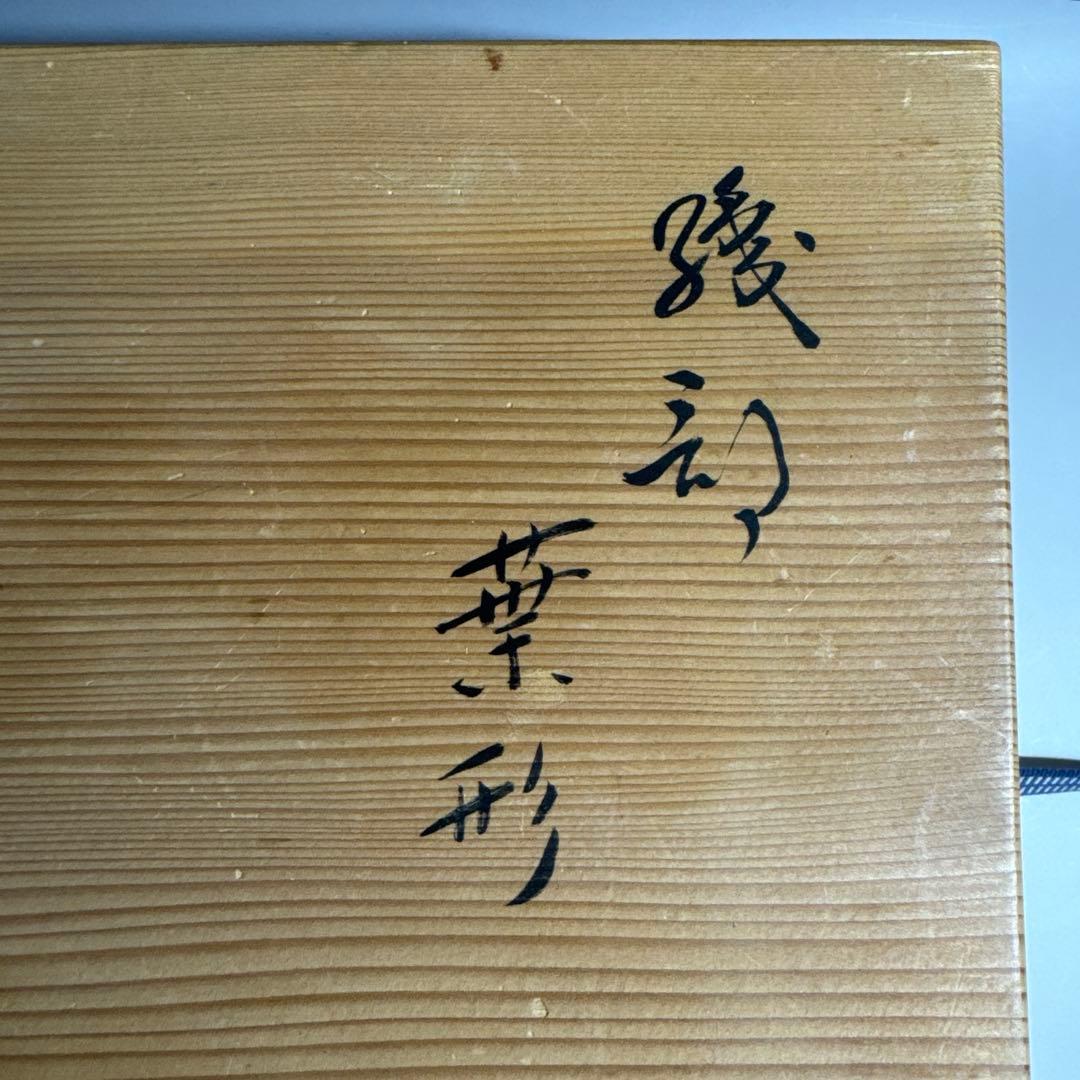 織部
葉形